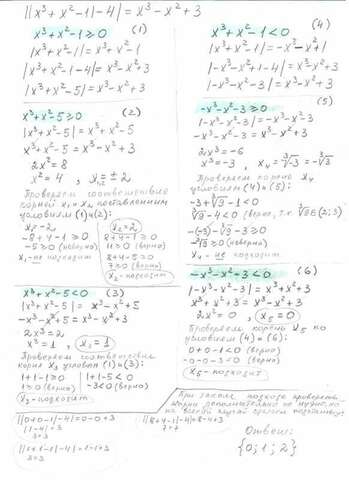 ||x³ + x² - 1| - 4| = x³ - x² + 3
x³ + x² - 1 ≥ 0 (1)
|x³ + x² - 1| = x³ + x² - 1
|x³ + x² - 1 - 4| = x³ - x² + 3
|x³ + x² - 5| = x³ - x² + 3
x³ + x² - 5 ≥ 0 (2)
|x³ + x² - 5| = x³ + x² - 5
x³ + x² - 5 = x³ - x² + 3
2x² = 8
x² = 4 , x₁,₂ = ± 2
Проверяем соответствие
корней x₁ и x₂ поставленным
условиям (1) и (2):
x₁ = -2
-8 + 4 - 1 ≥ 0
-5 ≥ 0 (неверно)
x₁ - не подходит
x₂ = 2
8 + 4 - 1 ≥ 0
11 ≥ 0 (верно)
8 + 4 - 5 ≥ 0
7 ≥ 0 (верно)
x₂ - подходит
x³ + x² - 5 < 0 (3)
|x³ + x² - 5| = -x³ - x² + 5
-x³ - x² + 5 = x³ - x² + 3
2x³ = 2
x³ = 1 , x₃ = 1
Проверяем соответствие
корня x₃ условия (1) и (3):
1 + 1 - 1 ≥ 0
1 ≥ 0 (верно)
1 + 1 - 5 < 0
-3 < 0 (верно)
x₃ - подходит
x³ + x² - 1 < 0 (4)
|x³ + x² - 1| = -x³ - x² + 1
|-x³ - x² + 1 - 4| = x³ - x² + 3
|-x³ - x² - 3| = x³ - x² + 3
-x³ - x² - 3 ≥ 0 (5)
|-x³ - x² - 3| = -x³ - x² - 3
-x³ - x² - 3 = x³ - x² + 3
2x³ = -6
x³ = -3 , x₄ = ∛-3 = -∛3
Проверяем корень x₄
условиям (4) и (5):
-3 + ∛9 - 1 < 0
∛9 - 4 < 0 (верно, т.к. ∛9 ∈ (2;3)
-(-3) - ∛9 - 3 ≥ 0
-∛9 ≥ 0 (неверно)
x₄ - не подходит
-x³ - x² - 3 < 0 (6)
|-x³ - x² - 3| = x³ + x² + 3
x³ + x² + 3 = x³ - x² + 3
2x² = 0 , x₅ = 0
Проверяем корень x₅ по
условиям (4) и (6):
0 + 0 - 1 < 0 (верно)
-0 - 0 - 3 < 0 (верно)
x₅ - подходит
При таком подходе проверять
корни дополнительно не нужно, но
на всякий случай сделаем
||0 + 0 - 1| - 4| = 0 - 0 + 3
|1 - 4| = 3
3 = 3
||1 + 1 - 1| - 4| = 1 - 1 + 3
3 = 3
||8 + 4 - 1| - 4| = 8 - 4 + 3
7 = 7
Ответ:
{0; 1; 2}